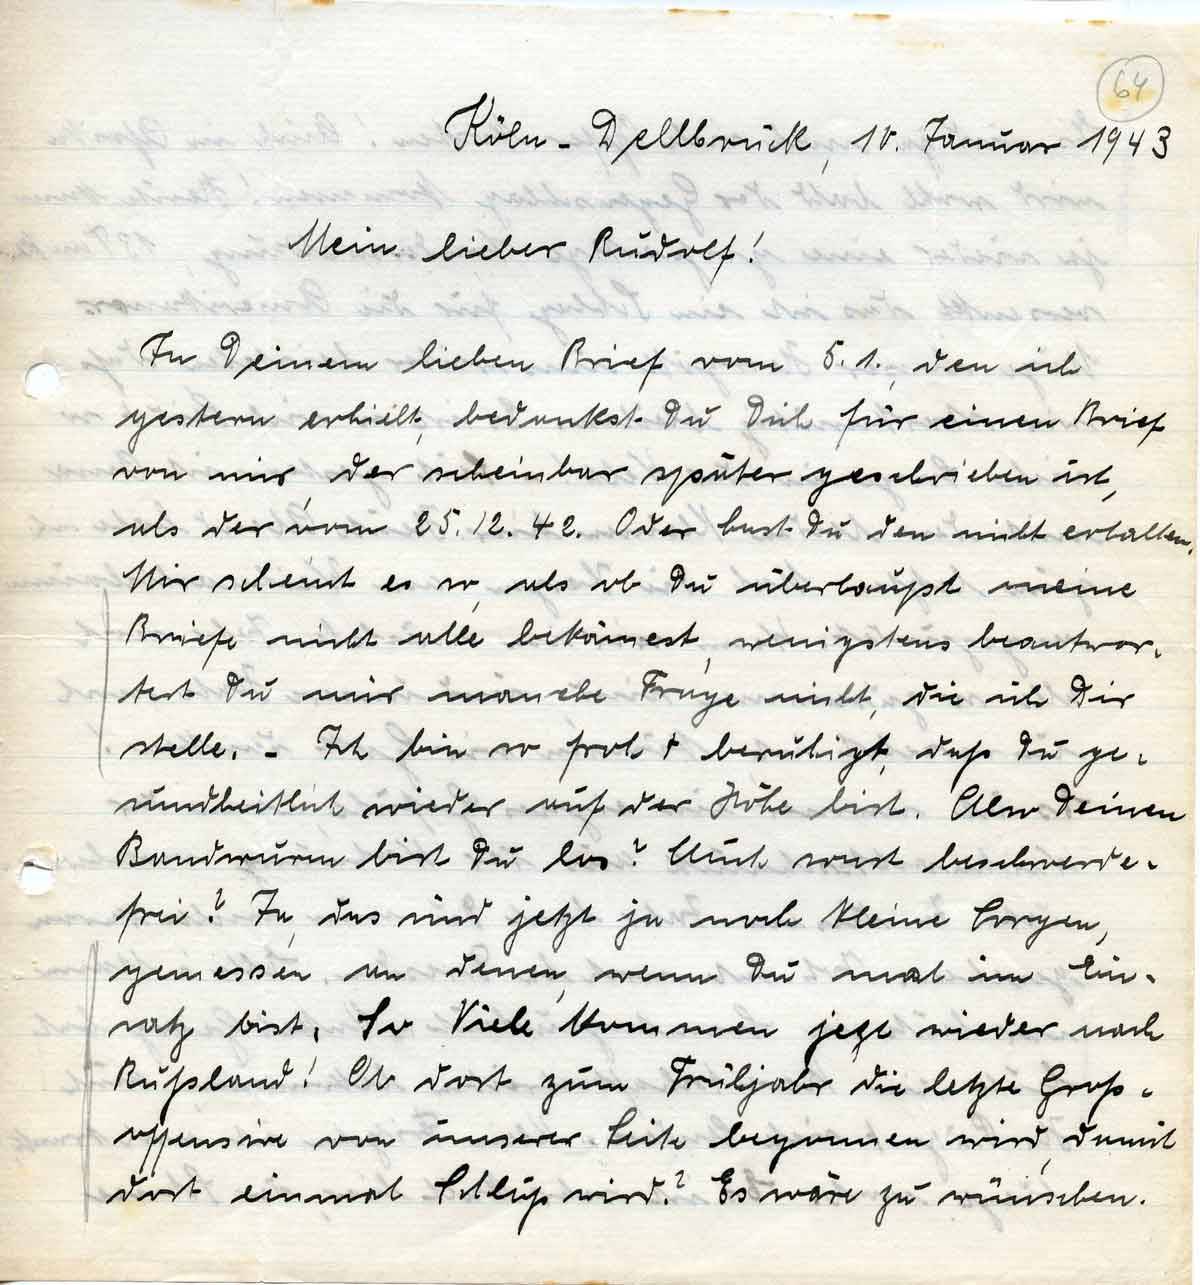 64
Köln - Dellbrück, 10. Januar 1943
Mein lieber Rudolf!
In Deinem lieben Brief vom 5.1., den ich
gestern erhielt, bedankst Du Dich für einen Brief
von mir, der scheinbar später geschrieben ist,
als der vom 25.12.42. Oder hast Du den nicht erhalten.
Mir scheint es so, als ob Du überhaupt meine
Briefe nicht alle bekämest, wenigstens beantwor-
test Du mir manche Frage nicht, die ich Dir
stelle. - Ich bin so froh + beruhigt, daß Du ge-
sundheitlich wieder auf der Höhe bist. Also Deinen
Bandwurm bist Du los? Auch sonst beschwerde-
frei? Ja, das sind jetzt ja noch kleine Sorgen,
gemessen an denen, wenn Du mal im Ein-
satz bist. So Viele kommen jetzt wieder nach
Rußland! Ob dort zum Frühjahr die letzte Groß-
offensive von unserer Seite begonnen wird, damit
dort einmal Schluß wird? Es wäre zu wünschen.